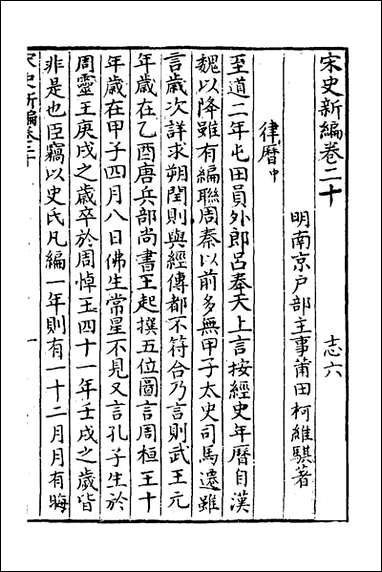 宋史新編卷二十　志六
明南京户部主事莆田柯維騏著
律曆中
至道二年屯田員外郎呂奉天上言按經史年曆自漢
魏以降雖有編聯周秦以前多無甲子太史司馬遷雖
言歲次詳求朔閏則與經傳都不符合乃言則武王元
年歲在乙酉唐兵部尚書王起撰五位圖言周桓王十
年歲在甲子四月八日佛生常星不見又言孔子生於
周靈王庚戌之歲卒於周悼王四十一年壬戌之歲皆
非是也臣竊以史氏凡編一年則有一十二月月有晦
宋史新編卷二十　一